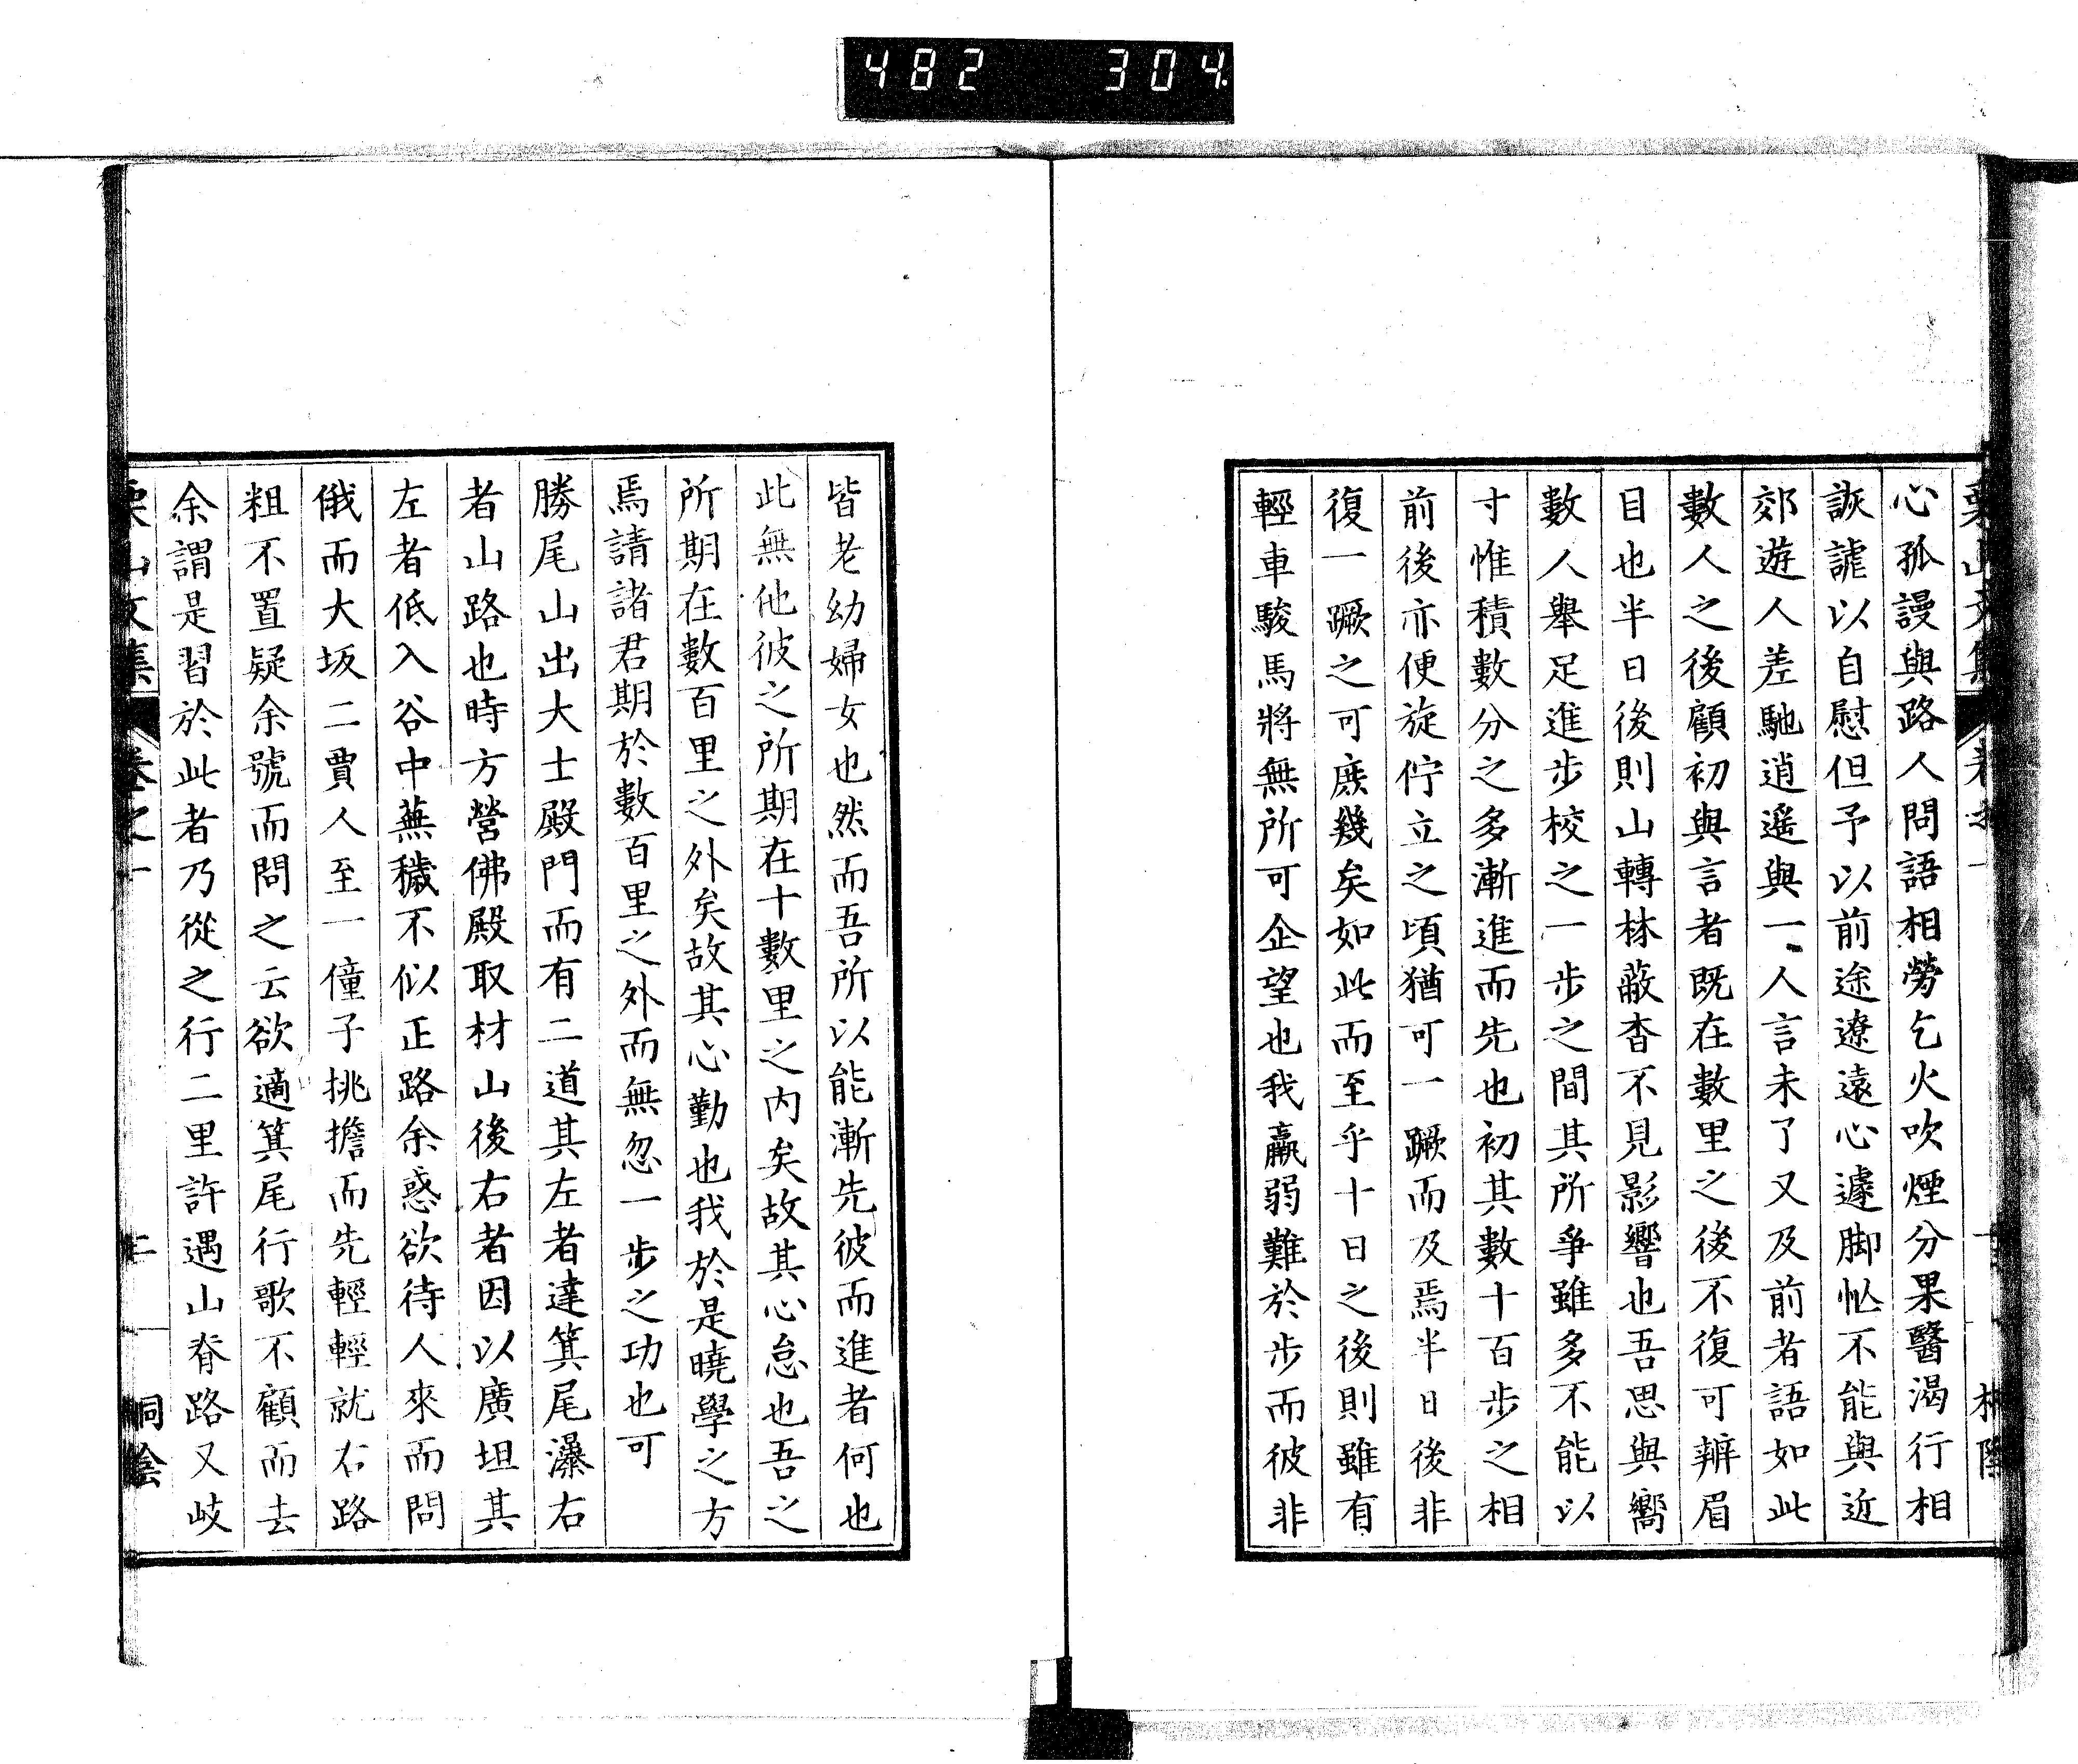 482 304
心孤謾與路人問語相勞乞火吹煙分果醫渴行相
詼謔以自慰但予以前途遼遠心遽脚忙不能與近
郊遊人差馳逍遙與一人言未了又及前者語如此
數人之後顧初與言者既在數里之後不復可辨眉
目也半日後則山轉林蔽杳不見影響也吾思與嚮
數人舉足進步校之一步之間其所爭雖多不能以
寸惟積數分之多漸進而先也初其數十百步之相
前後亦便旋佇立之頃猶可一蹶而及焉半日後非
復一蹶之可庶幾矣如此而至乎十日之後則雖有
輕車駿馬將無所可企望也我羸弱難於步而彼非
皆老幼婦女也然而吾所以能漸先彼而進者何也
此無他彼之所期在十數里之內矣故其心怠也吾之
所期在數百里之外矣故其心勤也我於是曉學之方
焉請諸君期於數百里之外而無忽一步之功也可
勝尾山出大士殿門而有二道其左者達箕尾瀑右
者山路也時方營佛殿取材山後右者因以廣坦其
左者低入谷中蕪穢不似正路余惑欲待人來而問
俄而大坂二賈人至一僮子挑擔而先輕輕就右路
粗不置疑余號而問之云欲適箕尾行歌不顧而去
余謂是習於此者乃從之行二里許遇山脊路又岐
栗山文集 卷之一 二 桐陰